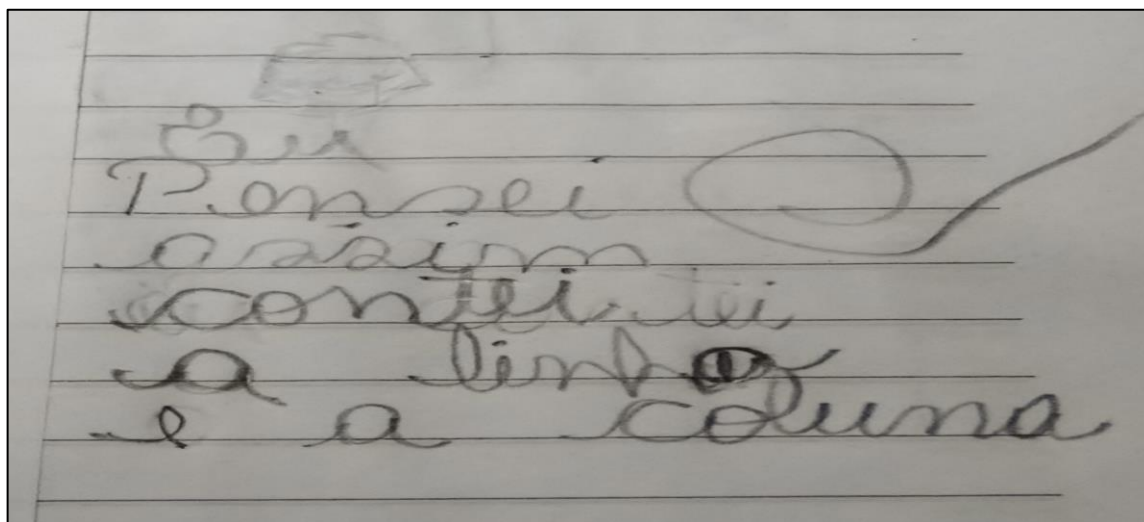 Eu
Pensei
assim
contei
a linha
e a coluna